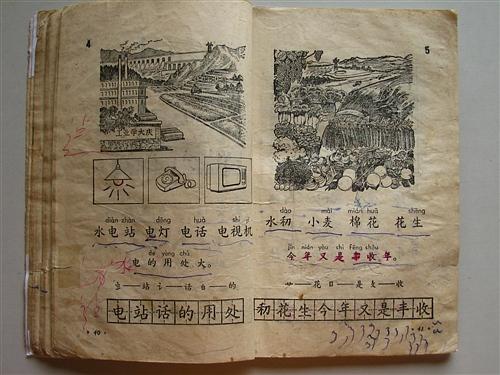 4
工业学大庆
diàn zhàn dēng huà shì jī
水电站 电灯 电话 电视机
de yòng chù
电的用处大。
立—站 讠—话 白—的
电站话的用处
·40·
5
dào mài mián huā shēng
水 小麦 棉花 花生
jīn nián yòu shì fēng shōu
今年又是丰收年。
艹—花 日—是 攵—收
花生今年又是丰收